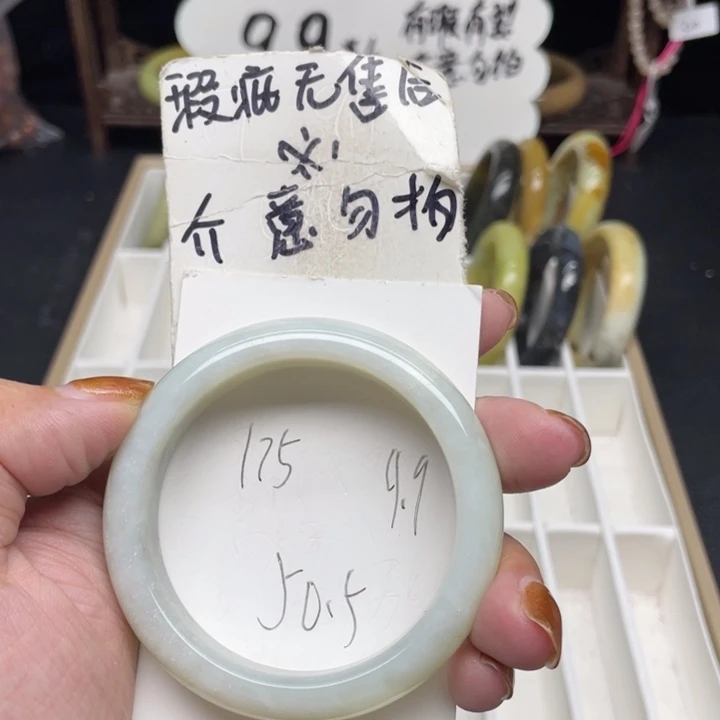 9.9
有瑕有裂
介意勿拍
瑕疵无售后
介意勿拍
175
9.9
50.5